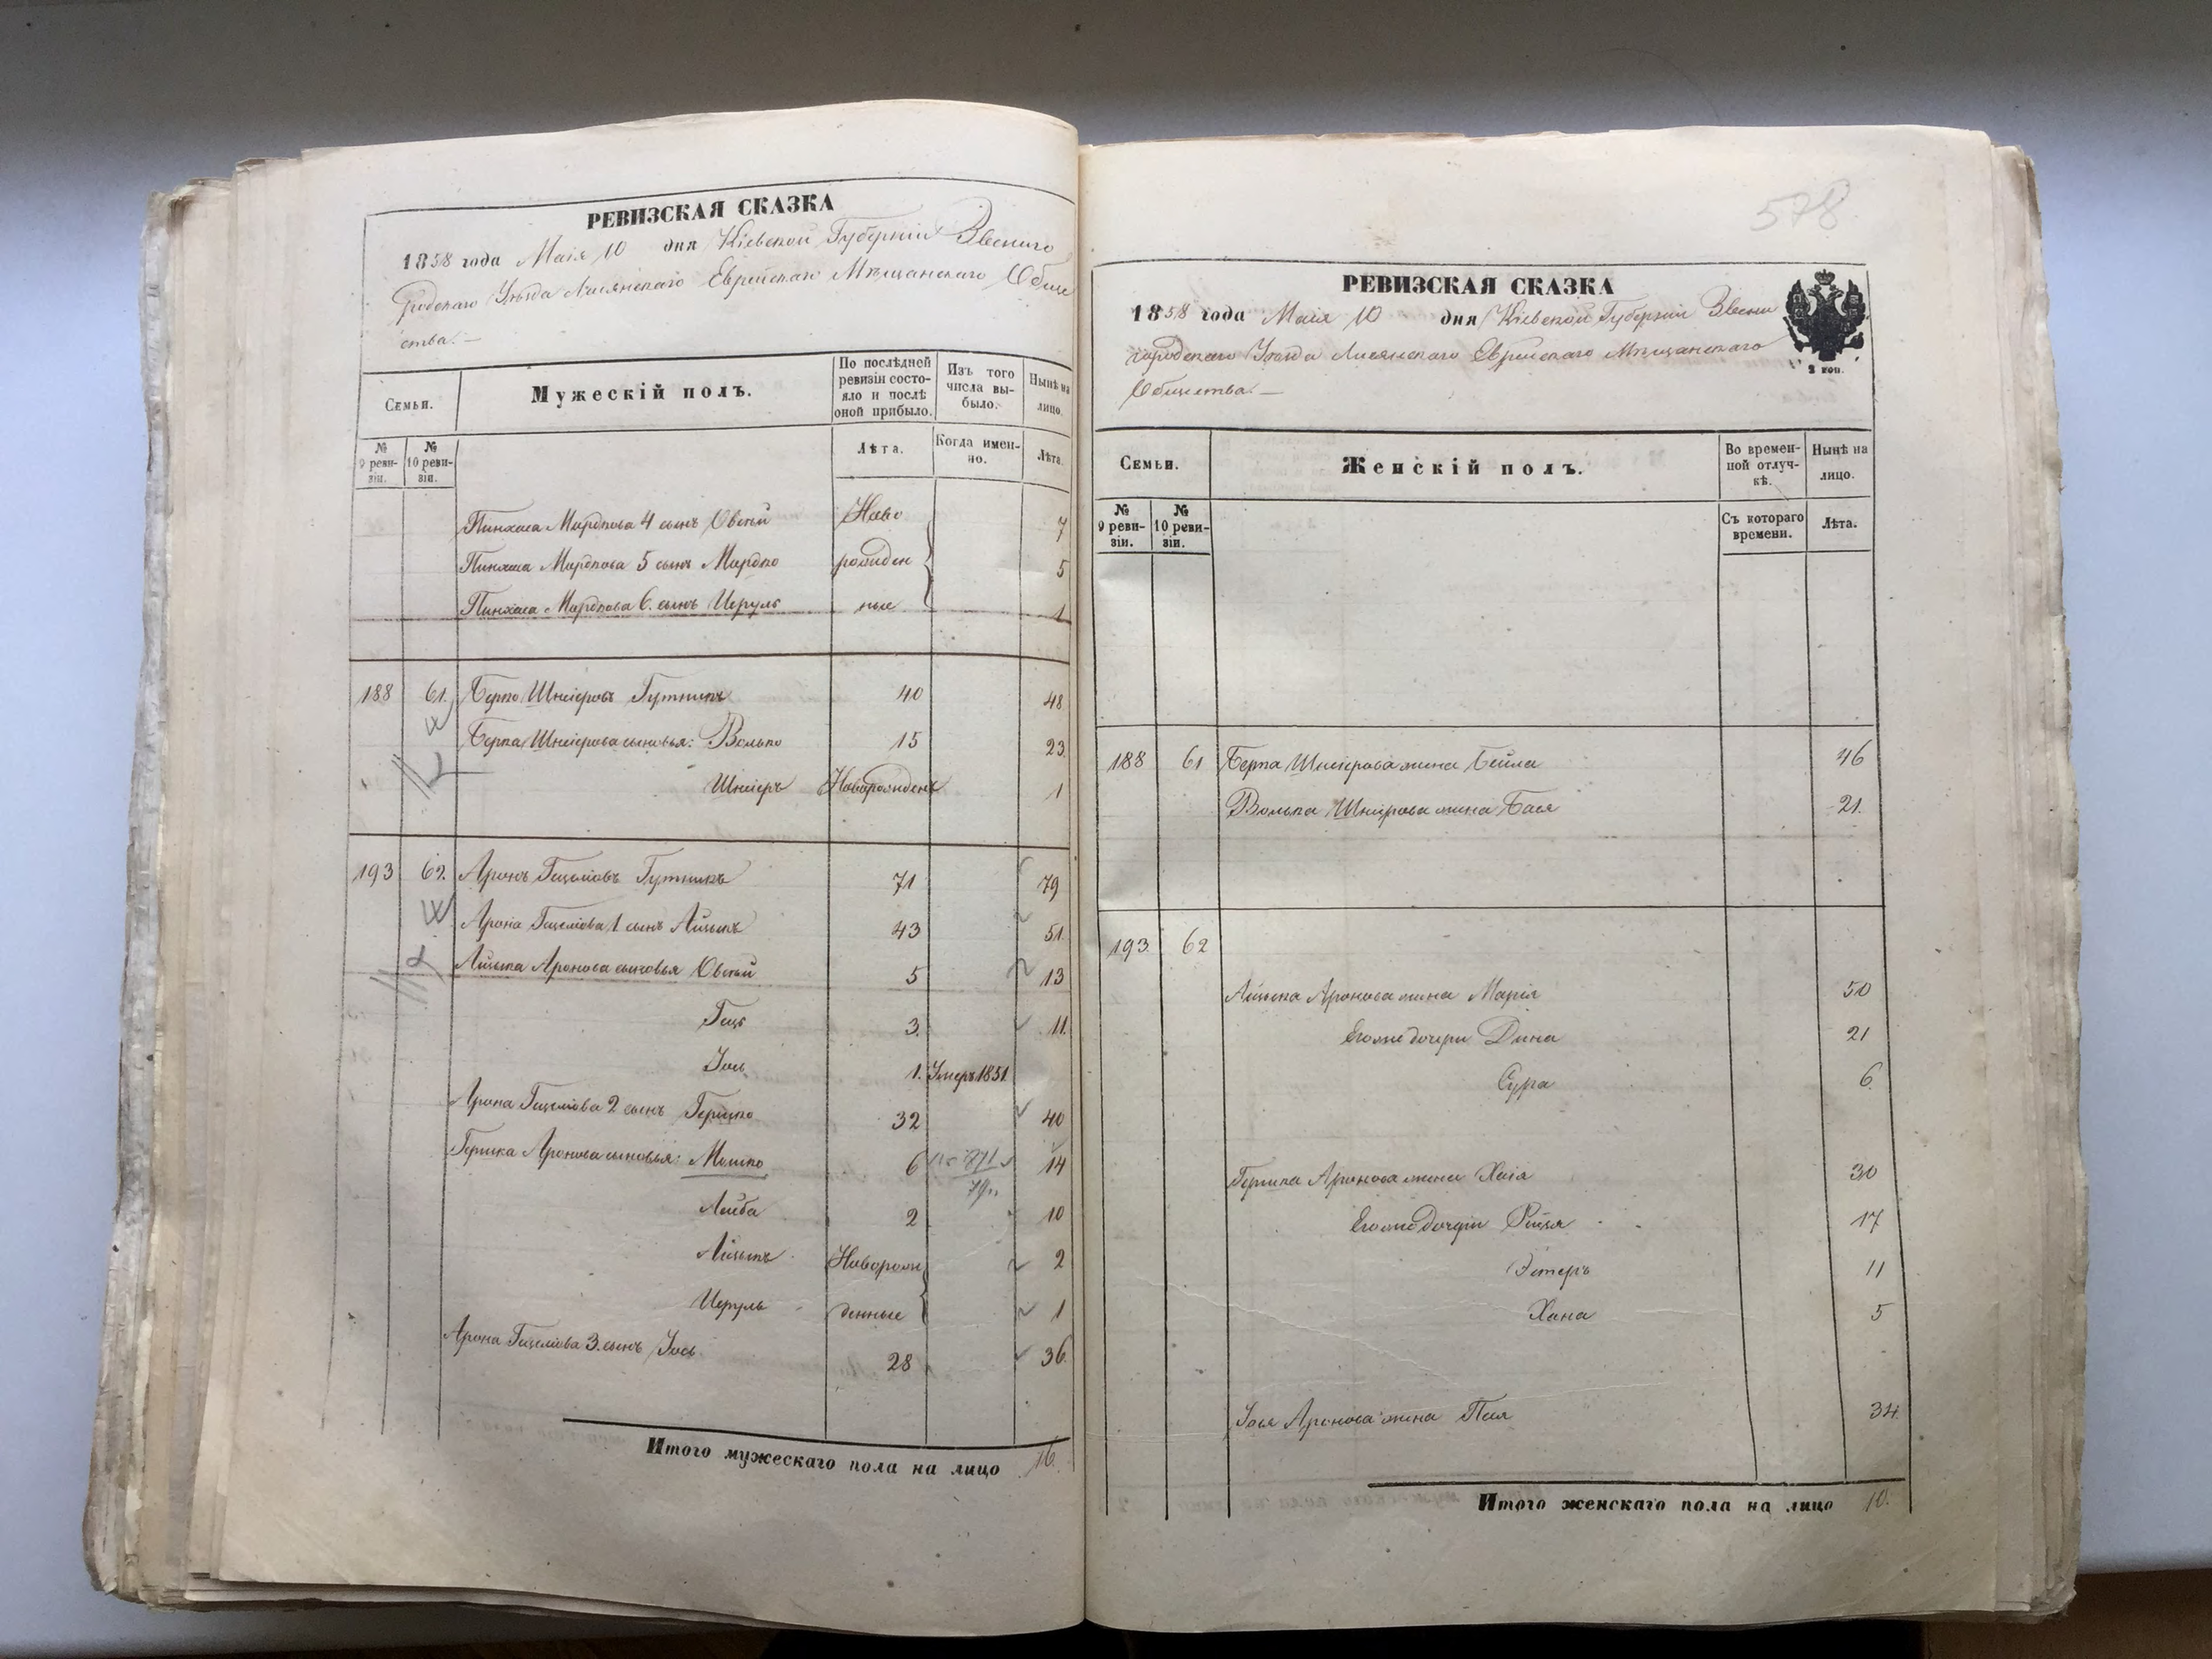 РЕВИЗСКАЯ СКАЗКА
1858 года Маія 10 дня Кіевской Губерніи Звениго
родскаго Уѣзда Лисянскаго Еврейскаго Мѣщанскаго Обще
ства. —
Семьи.
Мужескій полъ.
По послѣдней ревизіи состояло и послѣ оной прибыло.
Изъ того числа выбыло.
Нынѣ на лицо.
№ 9 ревизіи.
№ 10 ревизіи.
Лѣта.
Когда именно.
Лѣта.
Пинхаса Мордкова 4 сынъ Овсѣй Ново 7
Пинхаса Мордкова 5 сынъ Мордко рожден 5
Пинхаса Мордкова 6. сынъ Исруль ные 1
188 61. Берко Шнеіеровъ Гутникъ 40 48
Берка Шнеіерова сыновья: Волько 15 23
Шнеіеръ Новорожденъ 1
193 62. Аронъ Гецеліовъ Гутникъ 71 79
Арона Гецеліова 1 сынъ Айзыкъ 43 51.
Айзыка Аронова сыновья Овсѣй 5 13
Гецъ 3. 11.
Іось 1. Умеръ 1851.
Арона Гецеліова 2 сынъ Гершко 32 40
Гершка Аронова сыновья: Мошко 6 14
Лейба 2 10
Айзыкъ Новорож 2
Исруль денные 1
Арона Гецеліова 3. сынъ Іось 28 36.
Итого мужескаго пола на лицо 16.
578
РЕВИЗСКАЯ СКАЗКА
1858 года Маія 10 дня Кіевской Губерніи Звени
городскаго Уѣзда Лисянскаго Еврейскаго Мѣщанскаго
Общества. —
3 коп.
Семьи.
Женскій полъ.
Во временной отлучкѣ.
Нынѣ на лицо.
№ 9 ревизіи.
№ 10 ревизіи.
Съ котораго времени.
Лѣта.
188 61 Берка Шнеіерова жена Бейла 46
Волька Шнеірова жена Бася 21.
193. 62
Айзыка Аронова жена Марія 50
Его же дочери Дина 21
Сура 6.
Гершка Аронова жена Хаія 30
Его же дочери Рейзя 17
Эстеръ 11
Хана 5
Іося Аронова жена Песя 34.
Итого женскаго пола на лицо 10.